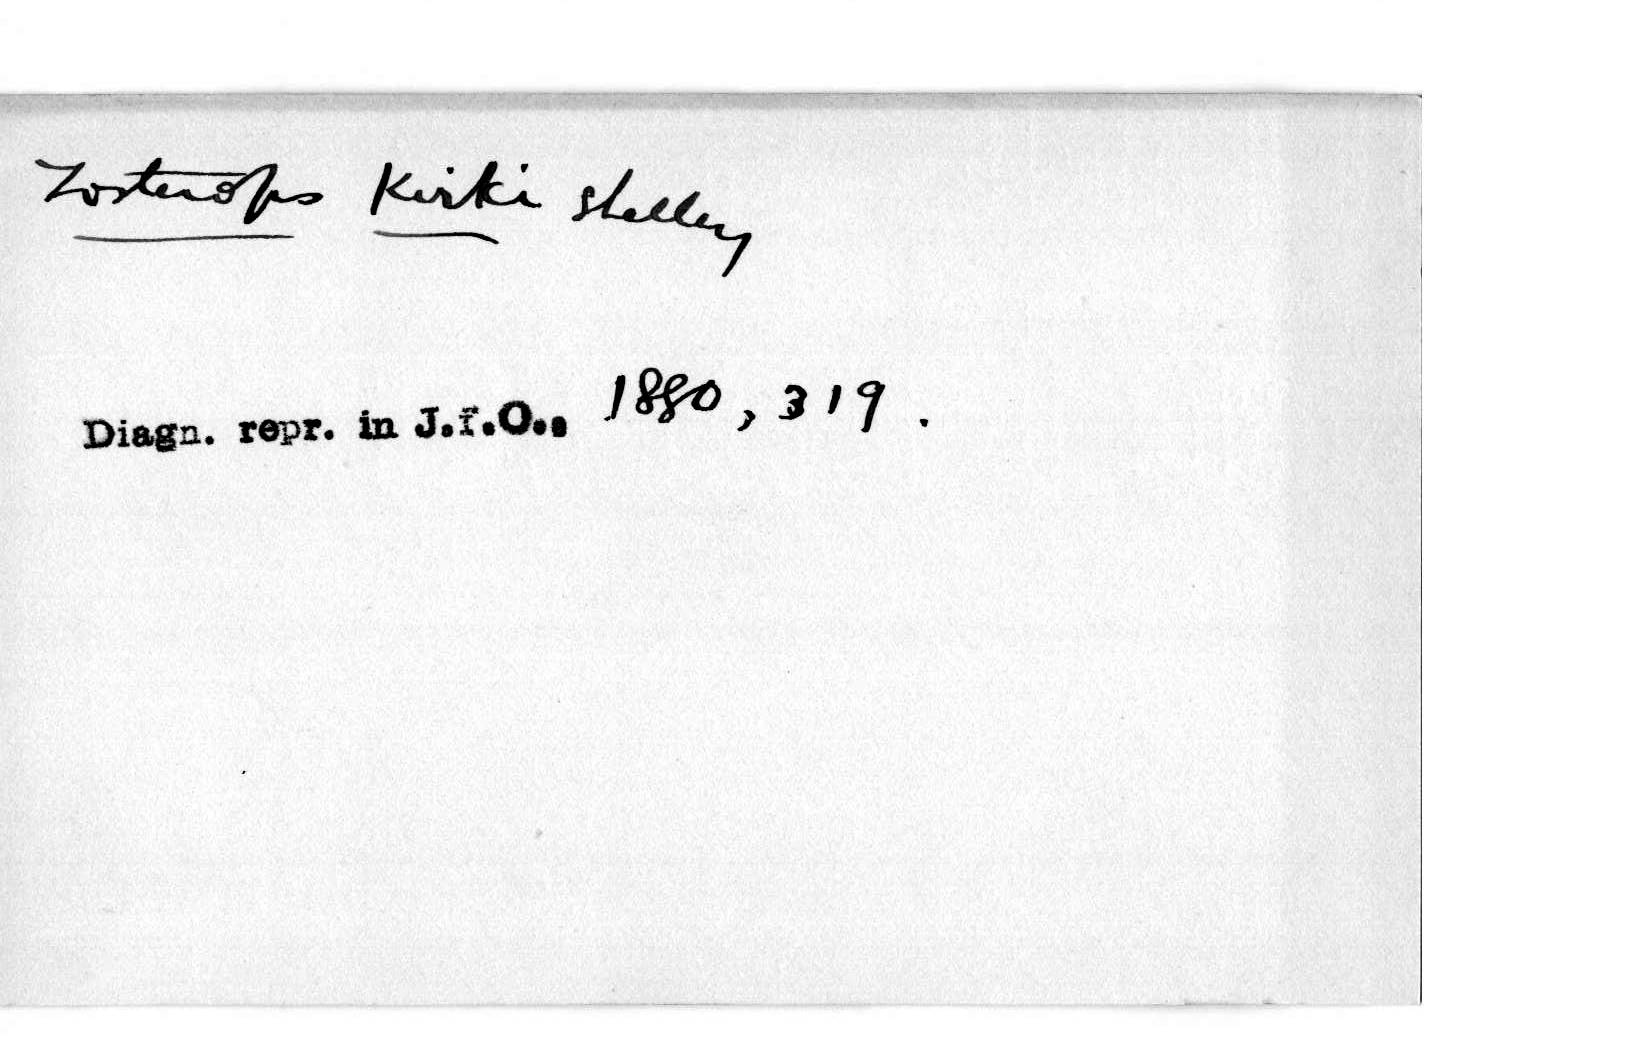 Zosterops Kirki Shelley
Diagn. repr. in J.f.O., 1880, 319.